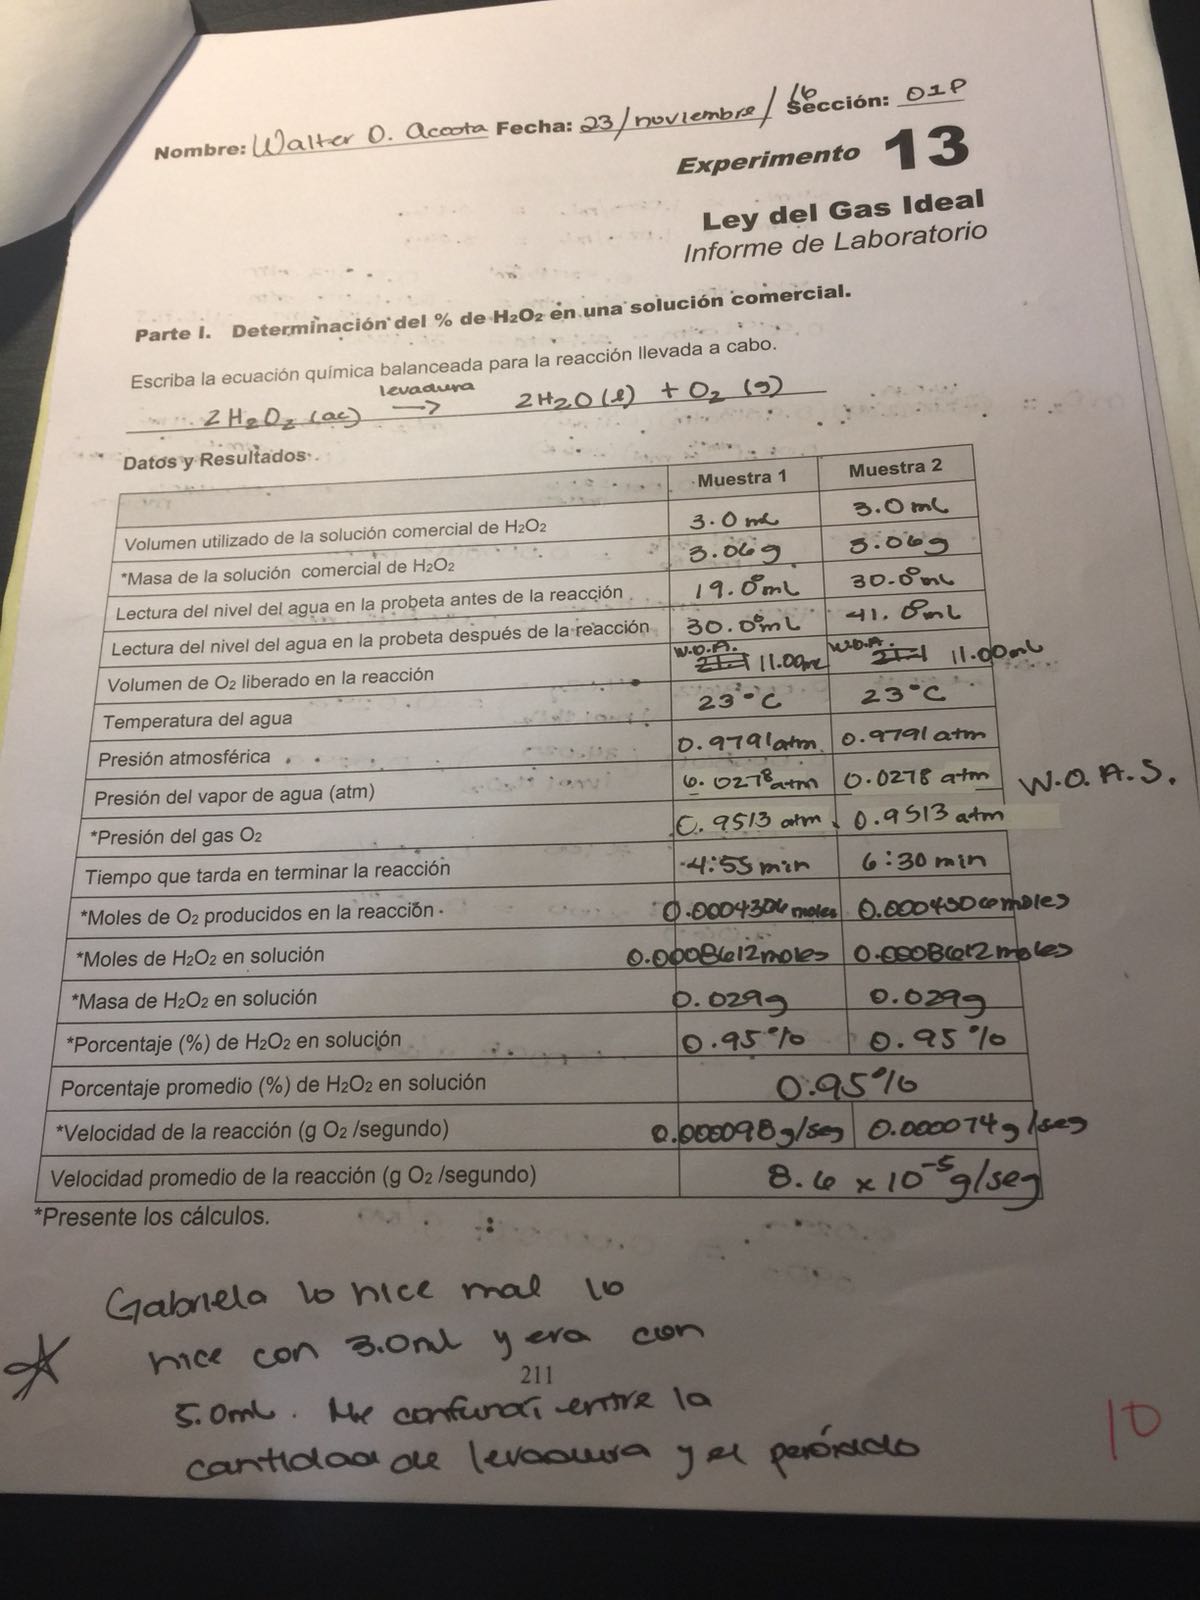 Nombre: Walter O. Acosta Fecha: 23/noviembre/16 Sección: 01P
Experimento 13
Ley del Gas Ideal
Informe de Laboratorio
Parte I. Determinación del % de H2O2 en una solución comercial.
Escriba la ecuación química balanceada para la reacción llevada a cabo.
levadura
2H2O2 (ac) → 2H2O (l) + O2 (g)
Datos y Resultados
Muestra 1 Muestra 2
Volumen utilizado de la solución comercial de H2O2 3.0 mL 3.0 mL
*Masa de la solución comercial de H2O2 3.06g 3.06g
Lectura del nivel del agua en la probeta antes de la reacción 19.00mL 30.00mL
Lectura del nivel del agua en la probeta después de la reacción 30.00mL 41.00mL
Volumen de O2 liberado en la reacción W.O.A. 11.00mL W.O.A. 11.00mL
Temperatura del agua 23°C 23°C
Presión atmosférica 0.9791atm 0.9791atm
Presión del vapor de agua (atm) 0.0278atm 0.0278 atm W.O.A.S.
*Presión del gas O2 0.9513 atm 0.9513 atm
Tiempo que tarda en terminar la reacción 4:55 min 6:30 min
*Moles de O2 producidos en la reacción 0.0004306 moles 0.0004306moles
*Moles de H2O2 en solución 0.0008612moles 0.0008612moles
*Masa de H2O2 en solución 0.029g 0.029g
*Porcentaje (%) de H2O2 en solución 0.95% 0.95%
Porcentaje promedio (%) de H2O2 en solución 0.95%
*Velocidad de la reacción (g O2 /segundo) 0.000098g/seg 0.000074g/seg
Velocidad promedio de la reacción (g O2 /segundo) 8.6 x 10⁻⁵g/seg
*Presente los cálculos.
Gabriela lo hice mal lo
hice con 3.0ml y era con
211
5.0ml. Me confundí entre la
cantidad de levadura y el peróxido
10